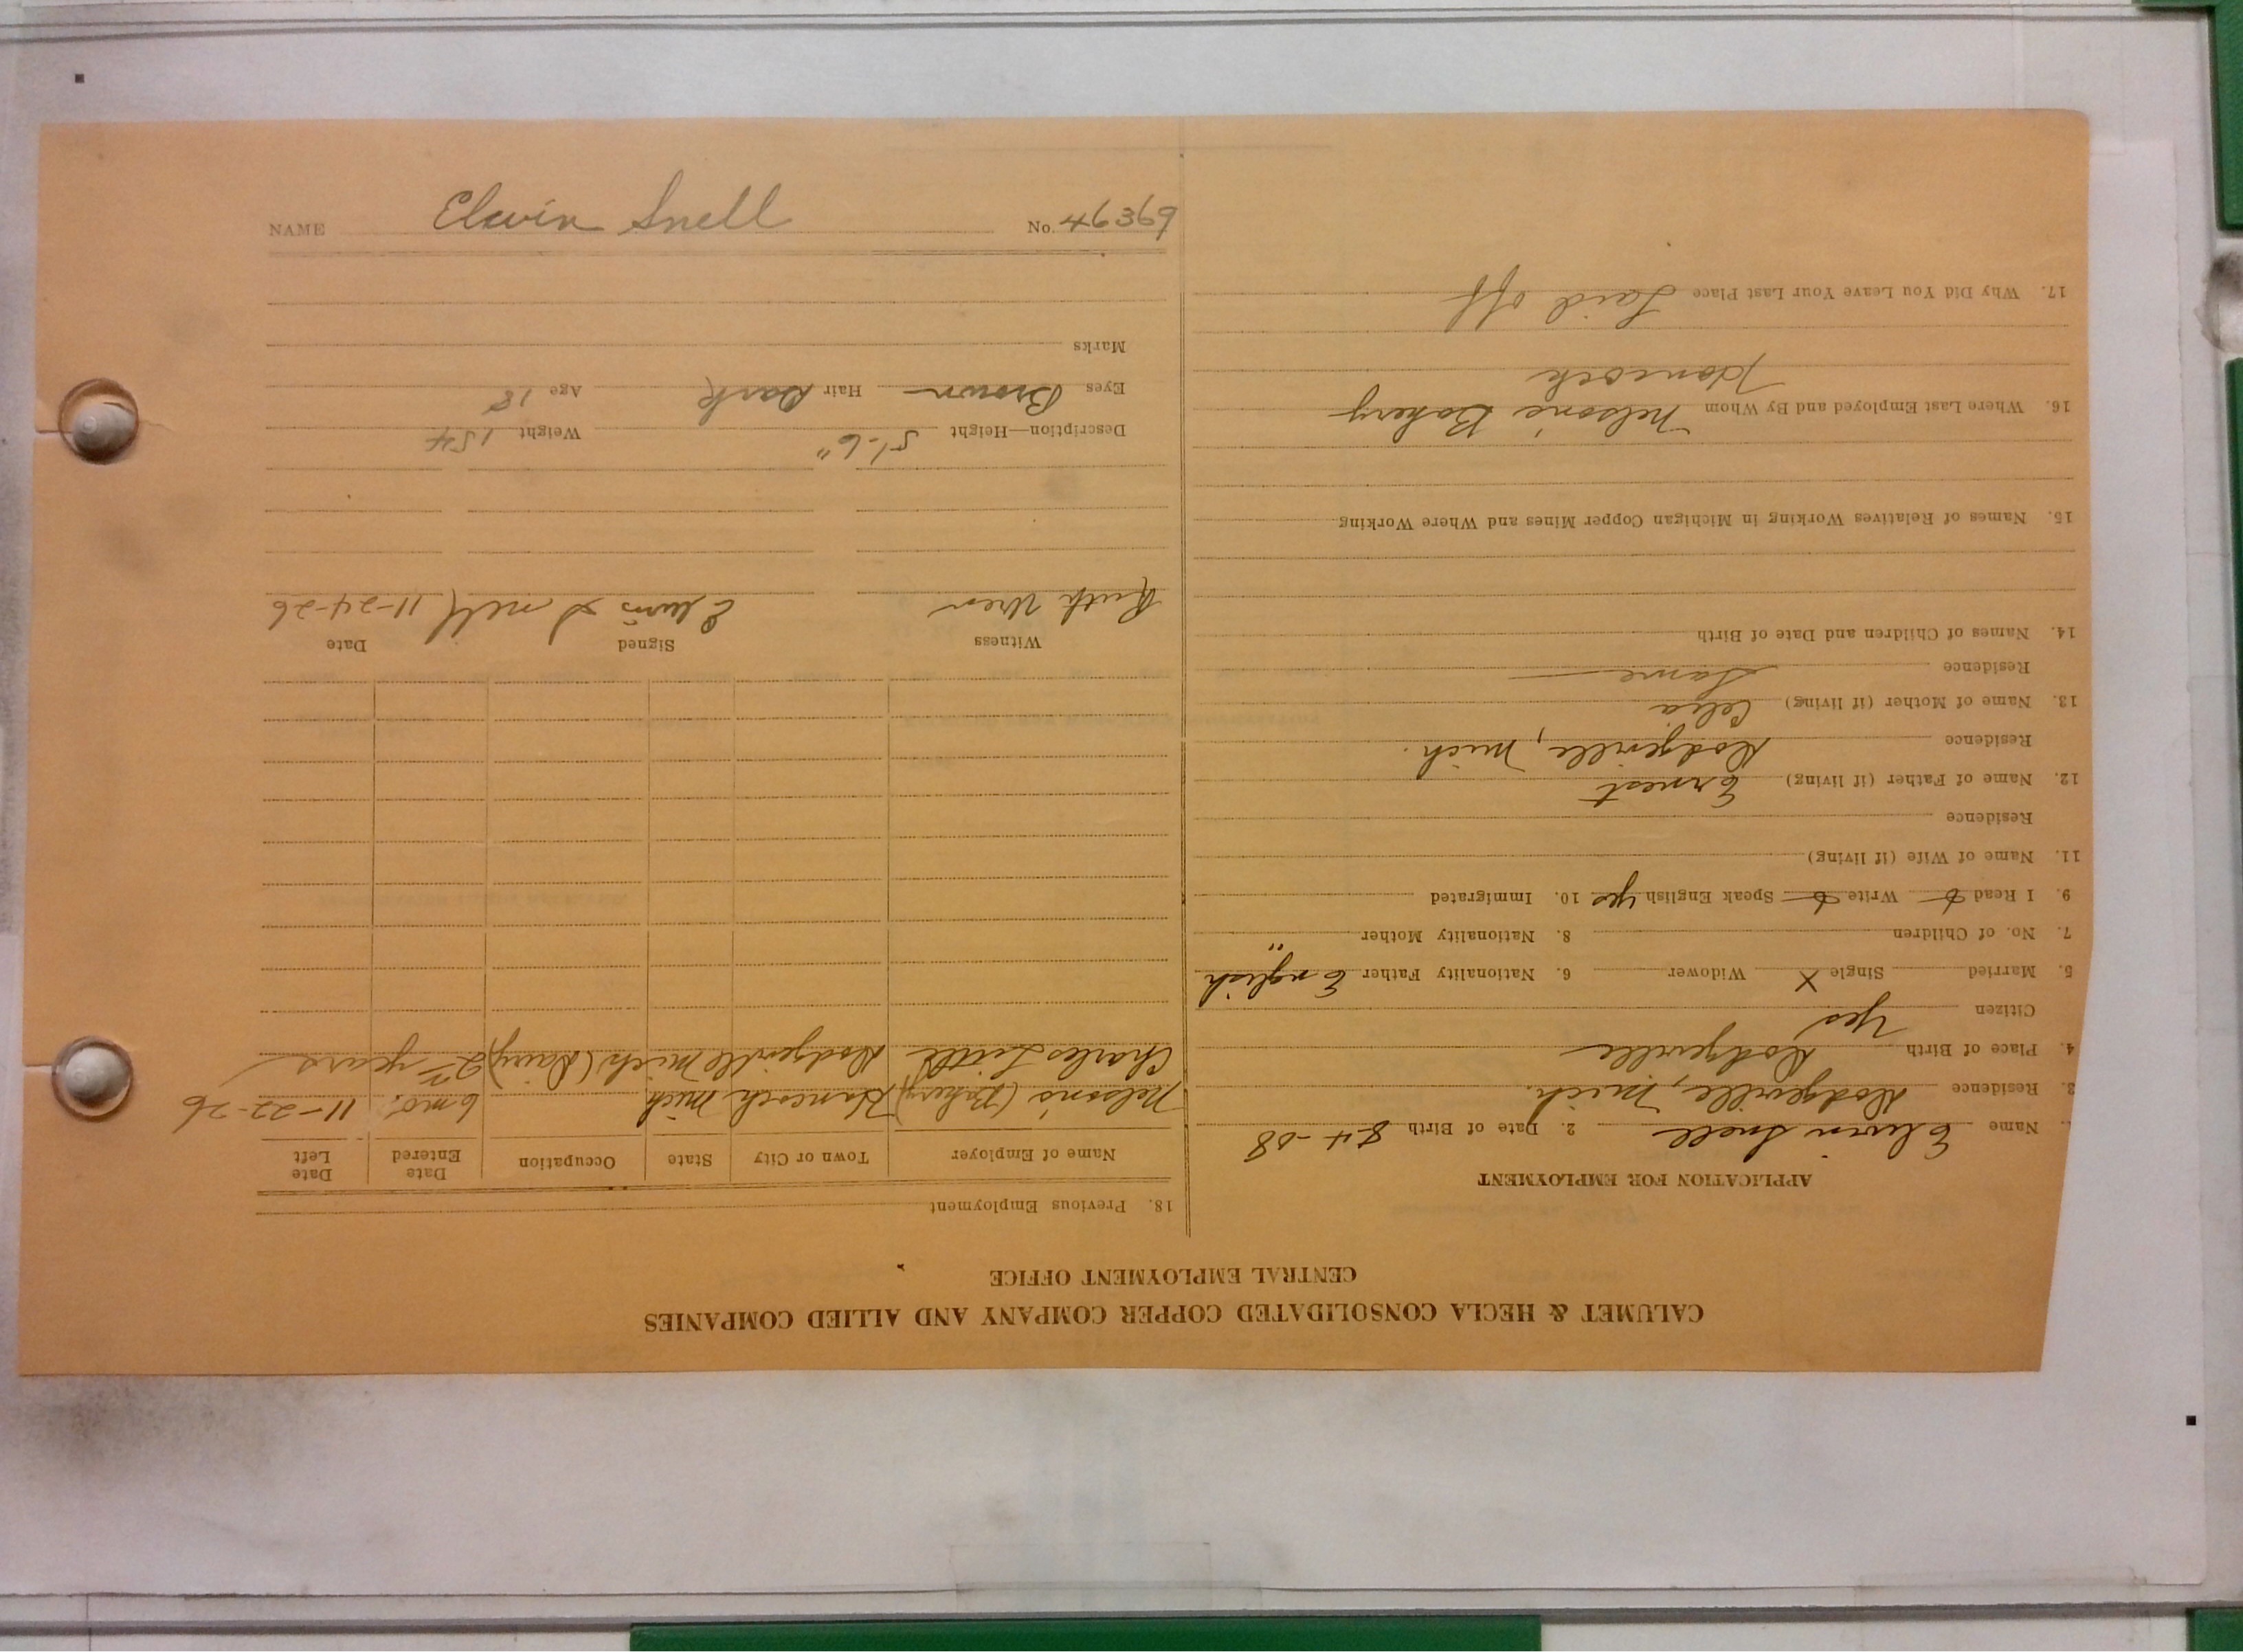 NAME Elwin Snell No. 46369
CALUMET & HECLA CONSOLIDATED COPPER COMPANY AND ALLIED COMPANIES
CENTRAL EMPLOYMENT OFFICE
APPLICATION FOR EMPLOYMENT
1. Name Elwin Snell 2. Date of Birth 8-4-08
3. Residence Dodgeville, Mich.
4. Place of Birth Dodgeville
Citizen Yes
5. Married Single X Widower 6. Nationality Father English
7. No. of Children 8. Nationality Mother "
9. I Read Write Speak English yes 10. Immigrated
11. Name of Wife (if living)
Residence
12. Name of Father (if living) Ernest
Residence Dodgeville, Mich.
13. Name of Mother (if living) Celia
Residence Same
14. Names of Children and Date of Birth
15. Names of Relatives Working in Michigan Copper Mines and Where Working
16. Where Last Employed and By Whom Nelson's Bakery
Hancock
17. Why Did You Leave Your Last Place Laid off
18. Previous Employment
Name of Employer Town or City State Occupation Date Entered Date Left
Nelson's (Bakery) Hancock Mich 6 mo. 11-22-26
Charles Little Dodgeville Mich (Dairy) 2 years
Witness Signed Date
Ruth Uren Elwin Snell 11-24-26
Description—Height 5'-6" Weight 154
Eyes Brown Hair Dark Age 18
Marks